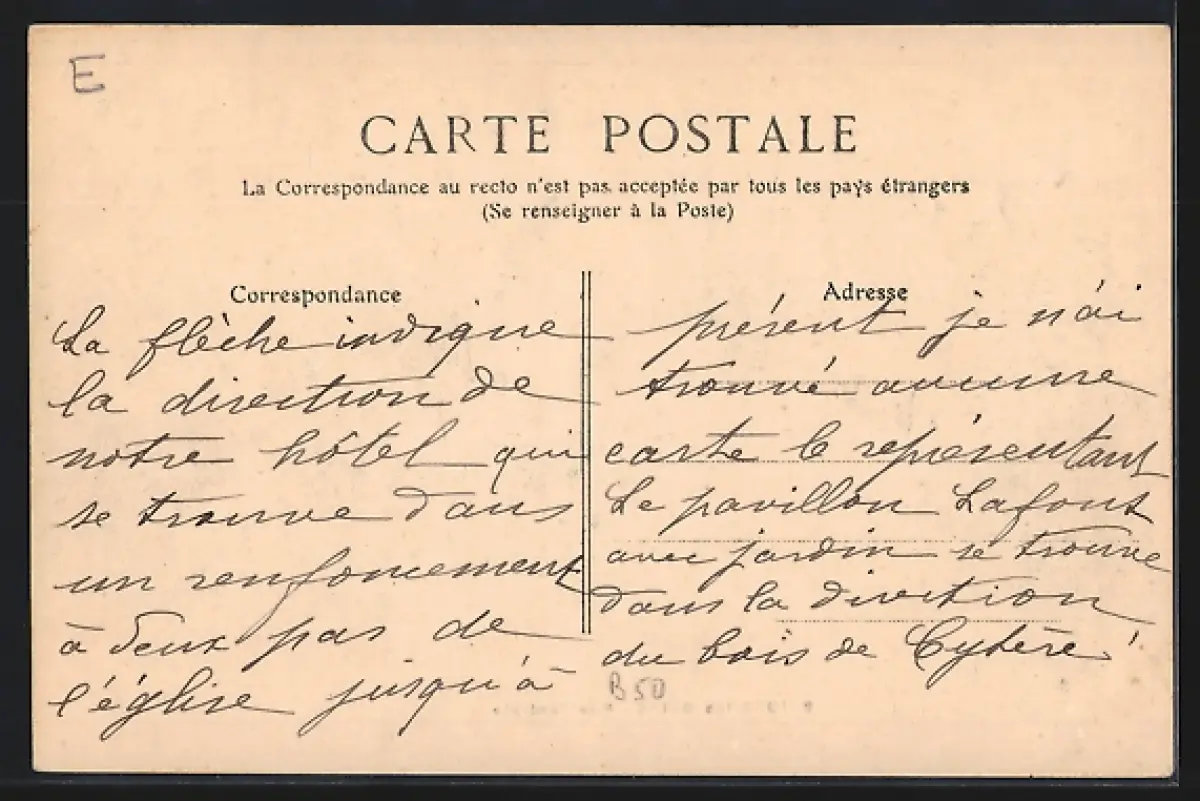 E
CARTE POSTALE
La Correspondance au recto n'est pas acceptée par tous les pays étrangers
(Se renseigner à la Poste)
Correspondance
La flèche indique
la direction de
notre hôtel qui
se trouve dans
un renfoncement
à deux pas de
l'église jusqu'à
Adresse
présent je n'ai
trouvé aucune
carte le représentant
Le pavillon Lafont
avec jardin se trouve
dans la direction
du bois de Cythère!
B50